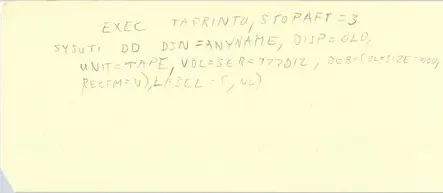 EXEC TAPRINTU, STOPAFT=3
SYSUT1 DD DSN=ANYNAME, DISP=OLD,
UNIT=TAPE, VOL=SER=777D12,
RECFM=U), LABEL=(, NL)